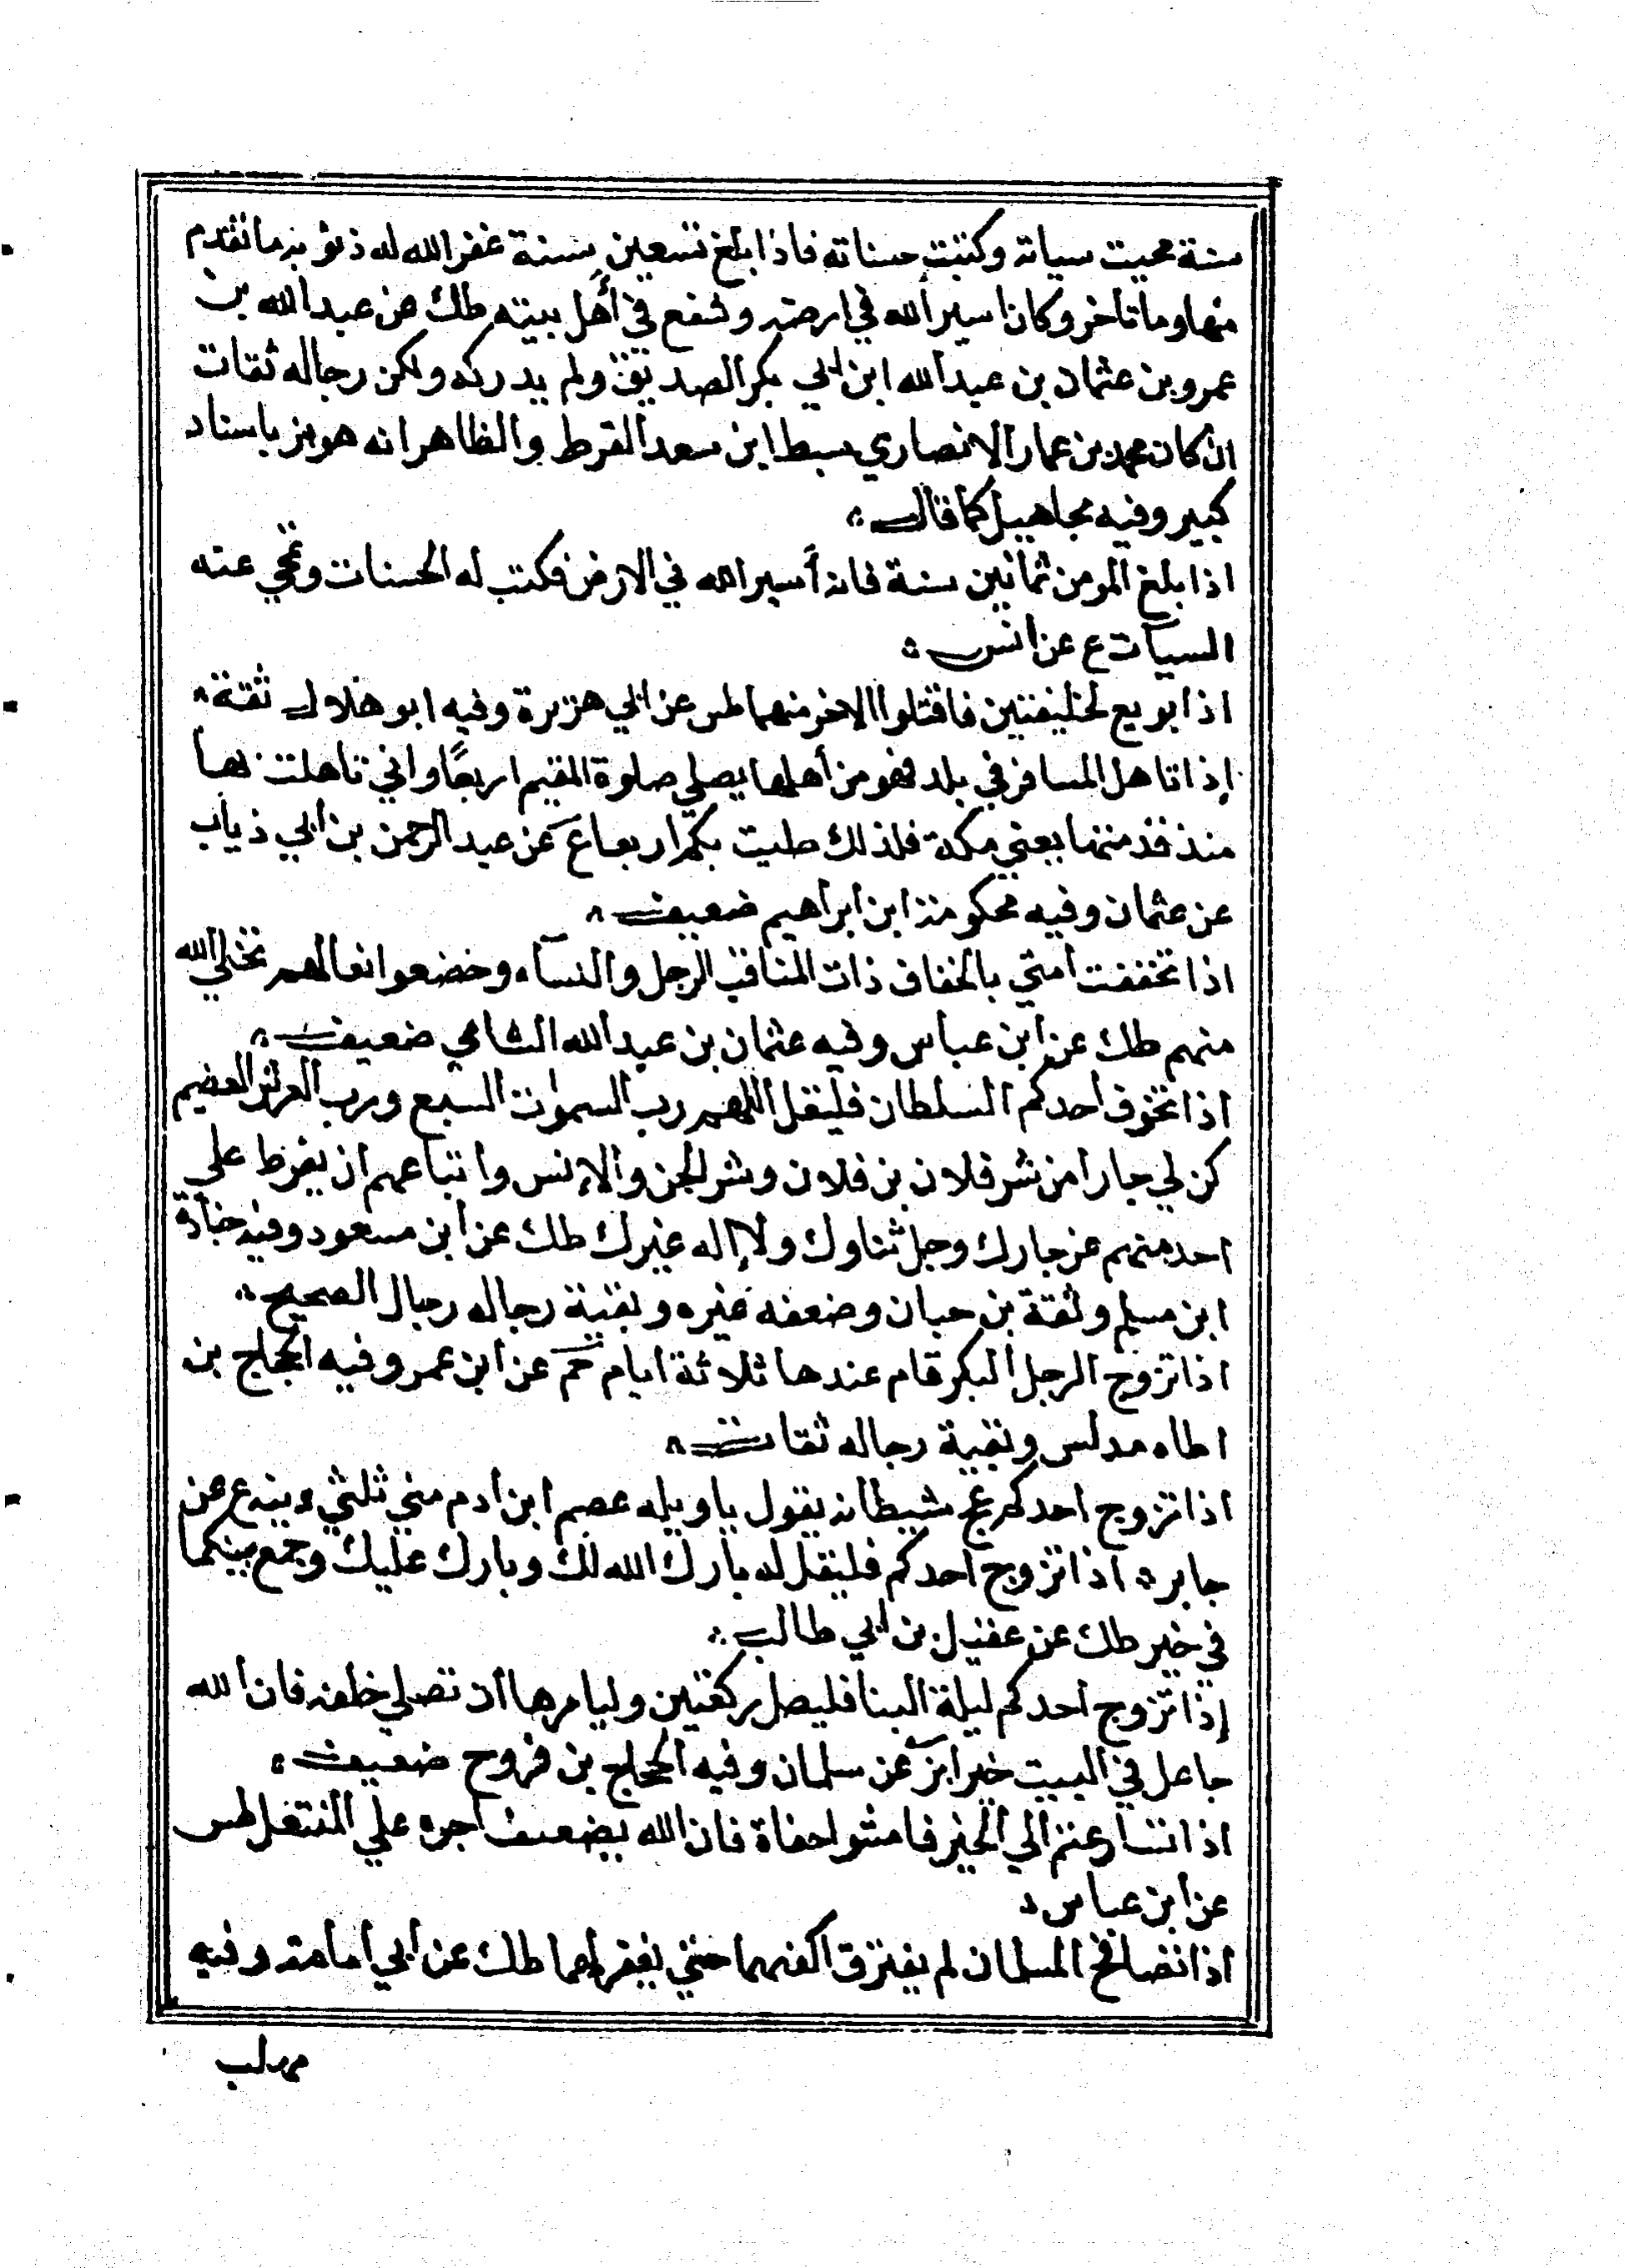 سنة محيت سياته وكتبت حسناته فاذا بلغ تسعين سنة غفر الله له ذنوبه ما تقدم
منها وما تاخر وكان اسير الله في ارضه وشفع في أهل بيته طك عن عبد الله بن
عمرو بن عثمان بن عبد الله ابن ابي بكر الصديق ولم يدركه ولكن رجاله ثقات
ان كان محمد بن عمار الانصاري سبط ابن سعد القرط والظاهر انه هو بز باسناد
كبير وفيه مجاهيل كما قال
اذا بلغ المومن ثمانين سنة فانه أسير الله في الارض فكتب له الحسنات وتمحي عنه
السيات ع عن انس
اذا بويع لخليفتين فاقتلوا الاخر منهما طس عن ابي هريرة وفيه ابو هلال ثقة
إذا تاهل المسافر في بلد فهو من أهلها يصلي صلوة المقيم اربعًا واني تاهلت بها
منذ قدمتها يعني مكة فلذلك صليت بكم اربعا ع عن عبد الرحمن بن ابي ذياب
عن عثمان وفيه ابن ابراهيم ضعيف
اذا تخففت امتي بالخفاف ذات المناقب الرجل والنساء وخضعوا نعالهم تخلي الله
منهم طك عن ابن عباس وفيه عثمان بن عبد الله الشامي ضعيف
اذا تخوف احدكم السلطان فليقل اللهم رب السموات السبع ورب العرش العضيم
كن لي جارا من شر فلان بن فلان وشر الجن والإنس واتباعهم ان يفرط علي
احد منهم عز جارك وجل ثناوك ولا إله غيرك طك عن ابن مسعود وفيه جنادة
ابن مسلم وثقة بن حبان وضعفه غيره وبقية رجاله رجال الصحيح
اذا تزوج الرجل البكر قام عندها ثلاثة ايام حم عن ابن عمر وفيه الحجاج بن
اطاه مدلس وبقية رجاله ثقات
اذا تزوج احدكم عج شيطانه يقول ياويله عصم ابن ادم مني ثلثي دينه ع عن
جابر اذا تزوج احدكم فليقل له بارك الله لك وبارك عليك وجمع بينكما
في خير طك عن عقيل بن ابي طالب
إذا تزوج احدكم ليلة البنا فليصل ركعتين وليامرها ان تصلي خلفه فان الله
جاعل في البيت خيرا بز عن سلمان وفيه الحجاج بن فروح ضعيف
اذا تسارعتم الي الخير فامشوا حفاة فان الله يضعف اجره علي المنتعل طس
عن ابن عباس
اذا تصافح المسلمان لم يفترق اكفهما حتي يغفر لهما طك عن ابي امامة وفيه
مهلب